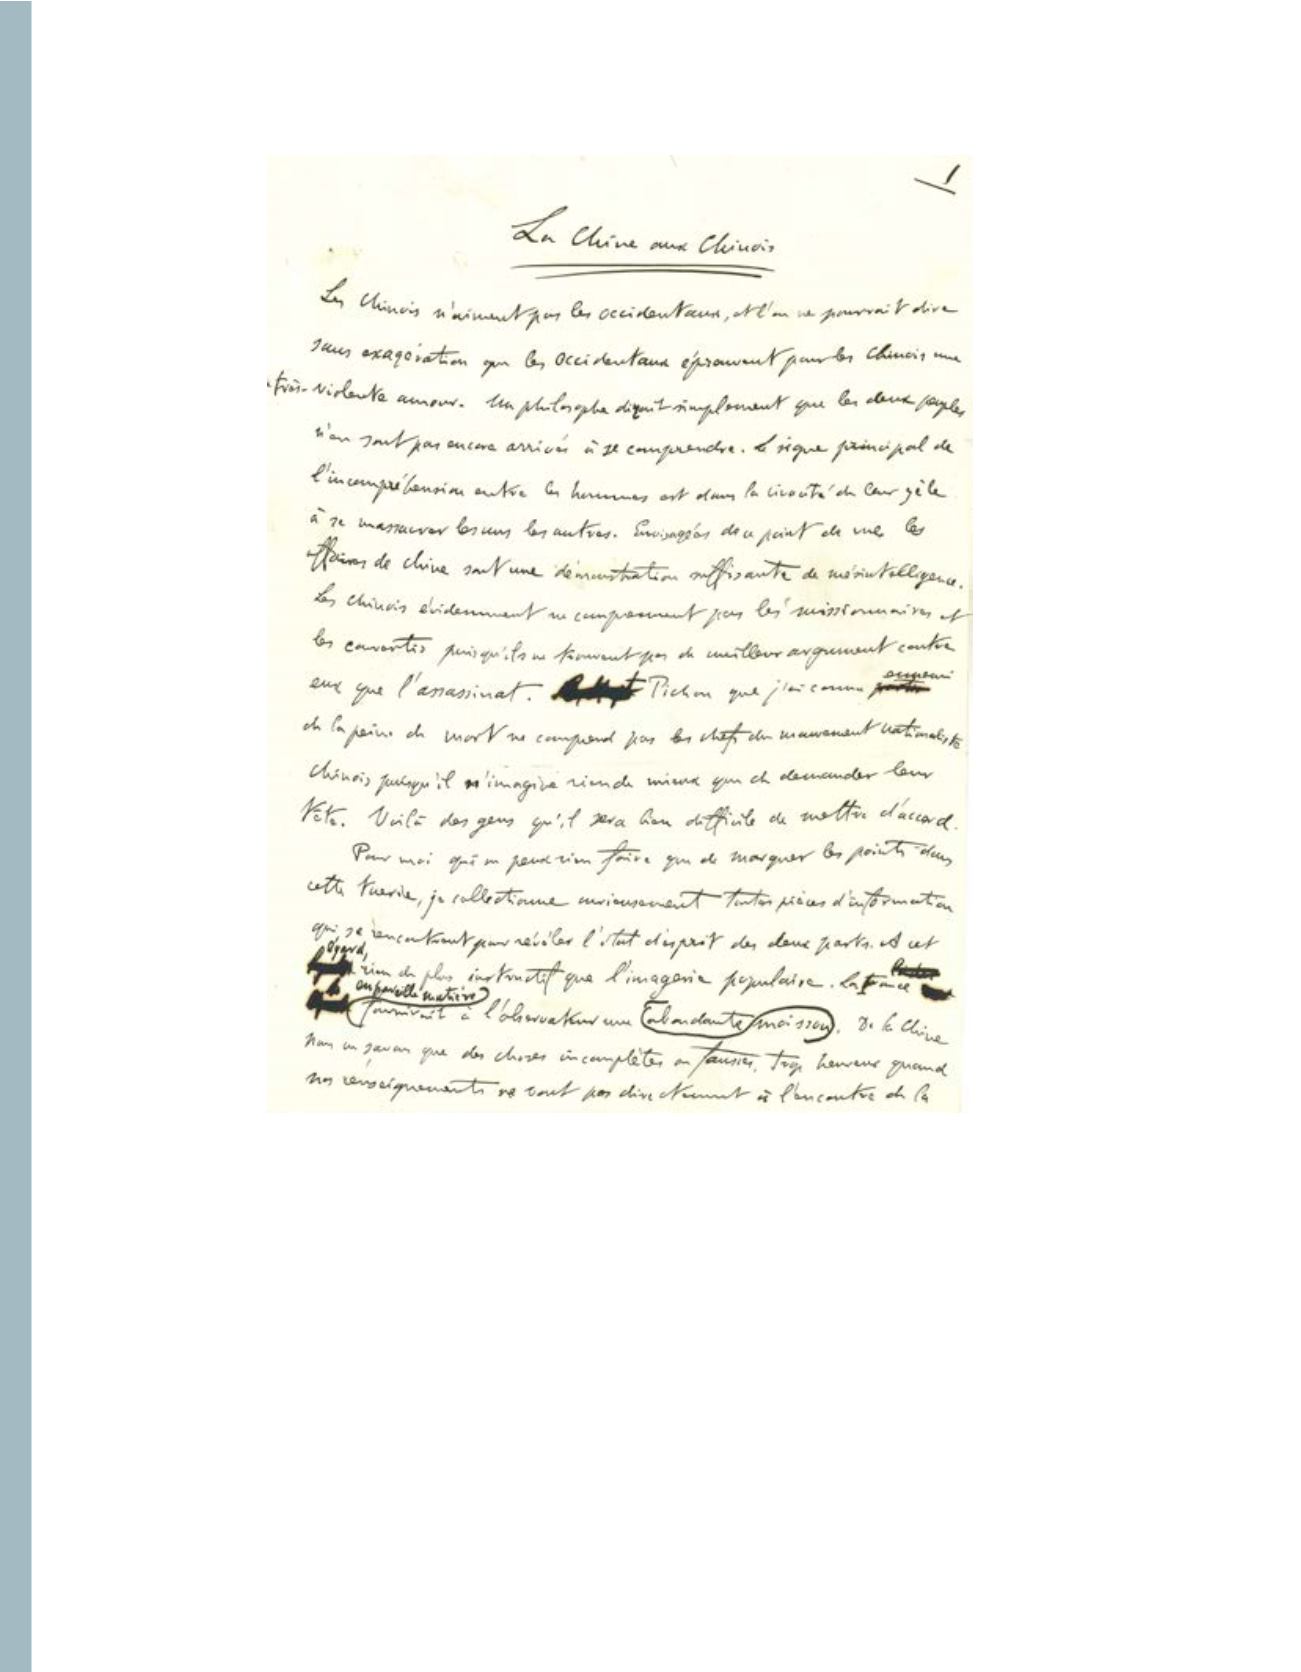 1
La Chine aux Chinois
Les Chinois n'aiment pas les occidentaux, et l'on ne pourrait dire
sans exagération que les Occidentaux éprouvent pour les Chinois une
très-violente amour. Un philosophe dirait simplement que les deux peuples
n'en sont pas encore arrivés à se comprendre. Le signe principal de
l'incompréhension entre les hommes est dans la vivacité de leur zèle
à se massacrer les uns les autres. Envisagées de ce point de vue les
affaires de Chine sont une démonstration suffisante de mésintelligence.
Les Chinois évidemment ne comprennent pas les missionnaires et
les convertis puisqu'ils ne trouvent pas de meilleur argument contre
eux que l'assassinat. Pichon que j'ai connu ennemi
de la peine de mort ne comprend pas les chefs du mouvement nationaliste
chinois puisqu'il n'imagine rien de mieux que de demander leur
tête. Voilà des gens qu'il sera bien difficile de mettre d'accord.
Pour moi qui ne peux rien faire que de marquer les points dans
cette tuerie, je collectionne curieusement toutes pièces d'information
qui se rencontrent pour révéler l'état d'esprit des deux parts. A cet
égard,
rien de plus instructif que l'imagerie populaire. La France
en pareille matière
fournirait à l'observateur une abondante moisson. De la Chine
nous ne savons que des choses incomplètes ou fausses, trop heureux quand
nos renseignements ne vont pas directement à l'encontre de la